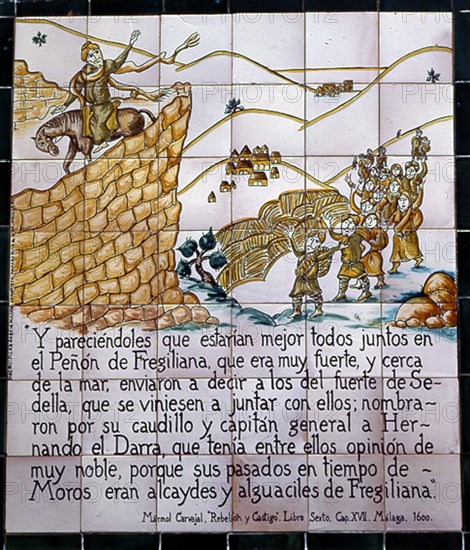 "Y pareciéndoles que estarían mejor todos juntos en
el Peñón de Fregiliana, que era muy fuerte, y cerca
de la mar, enviaron a decir a los del fuerte de Se-
della, que se viniesen a juntar con ellos; nombra-
ron por su caudillo y capitán general a Her-
nando el Darra, que tenía entre ellos opinión de
muy noble, porque sus pasados en tiempo de -
Moros eran alcaydes y alguaciles de Fregiliana."
Mármol Carvajal, "Rebelión y Castigo". Libro Sexto, Cap. XVII. Málaga, 1600.